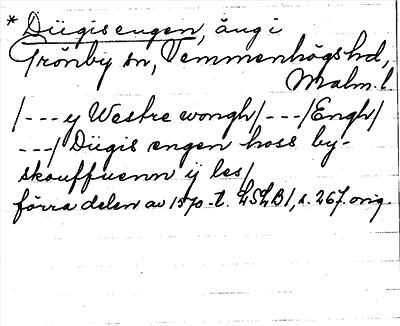 * Diigisengen, äng i
Grönby sn, Vemmenhögs hd,
Malm. l.
/---y Westre wongh/---/Engh/
---/ Diigis engen hoss by-
skouffuenn ÿ les/
förra delen av 1570-t. LSLB1, s. 267. orig.